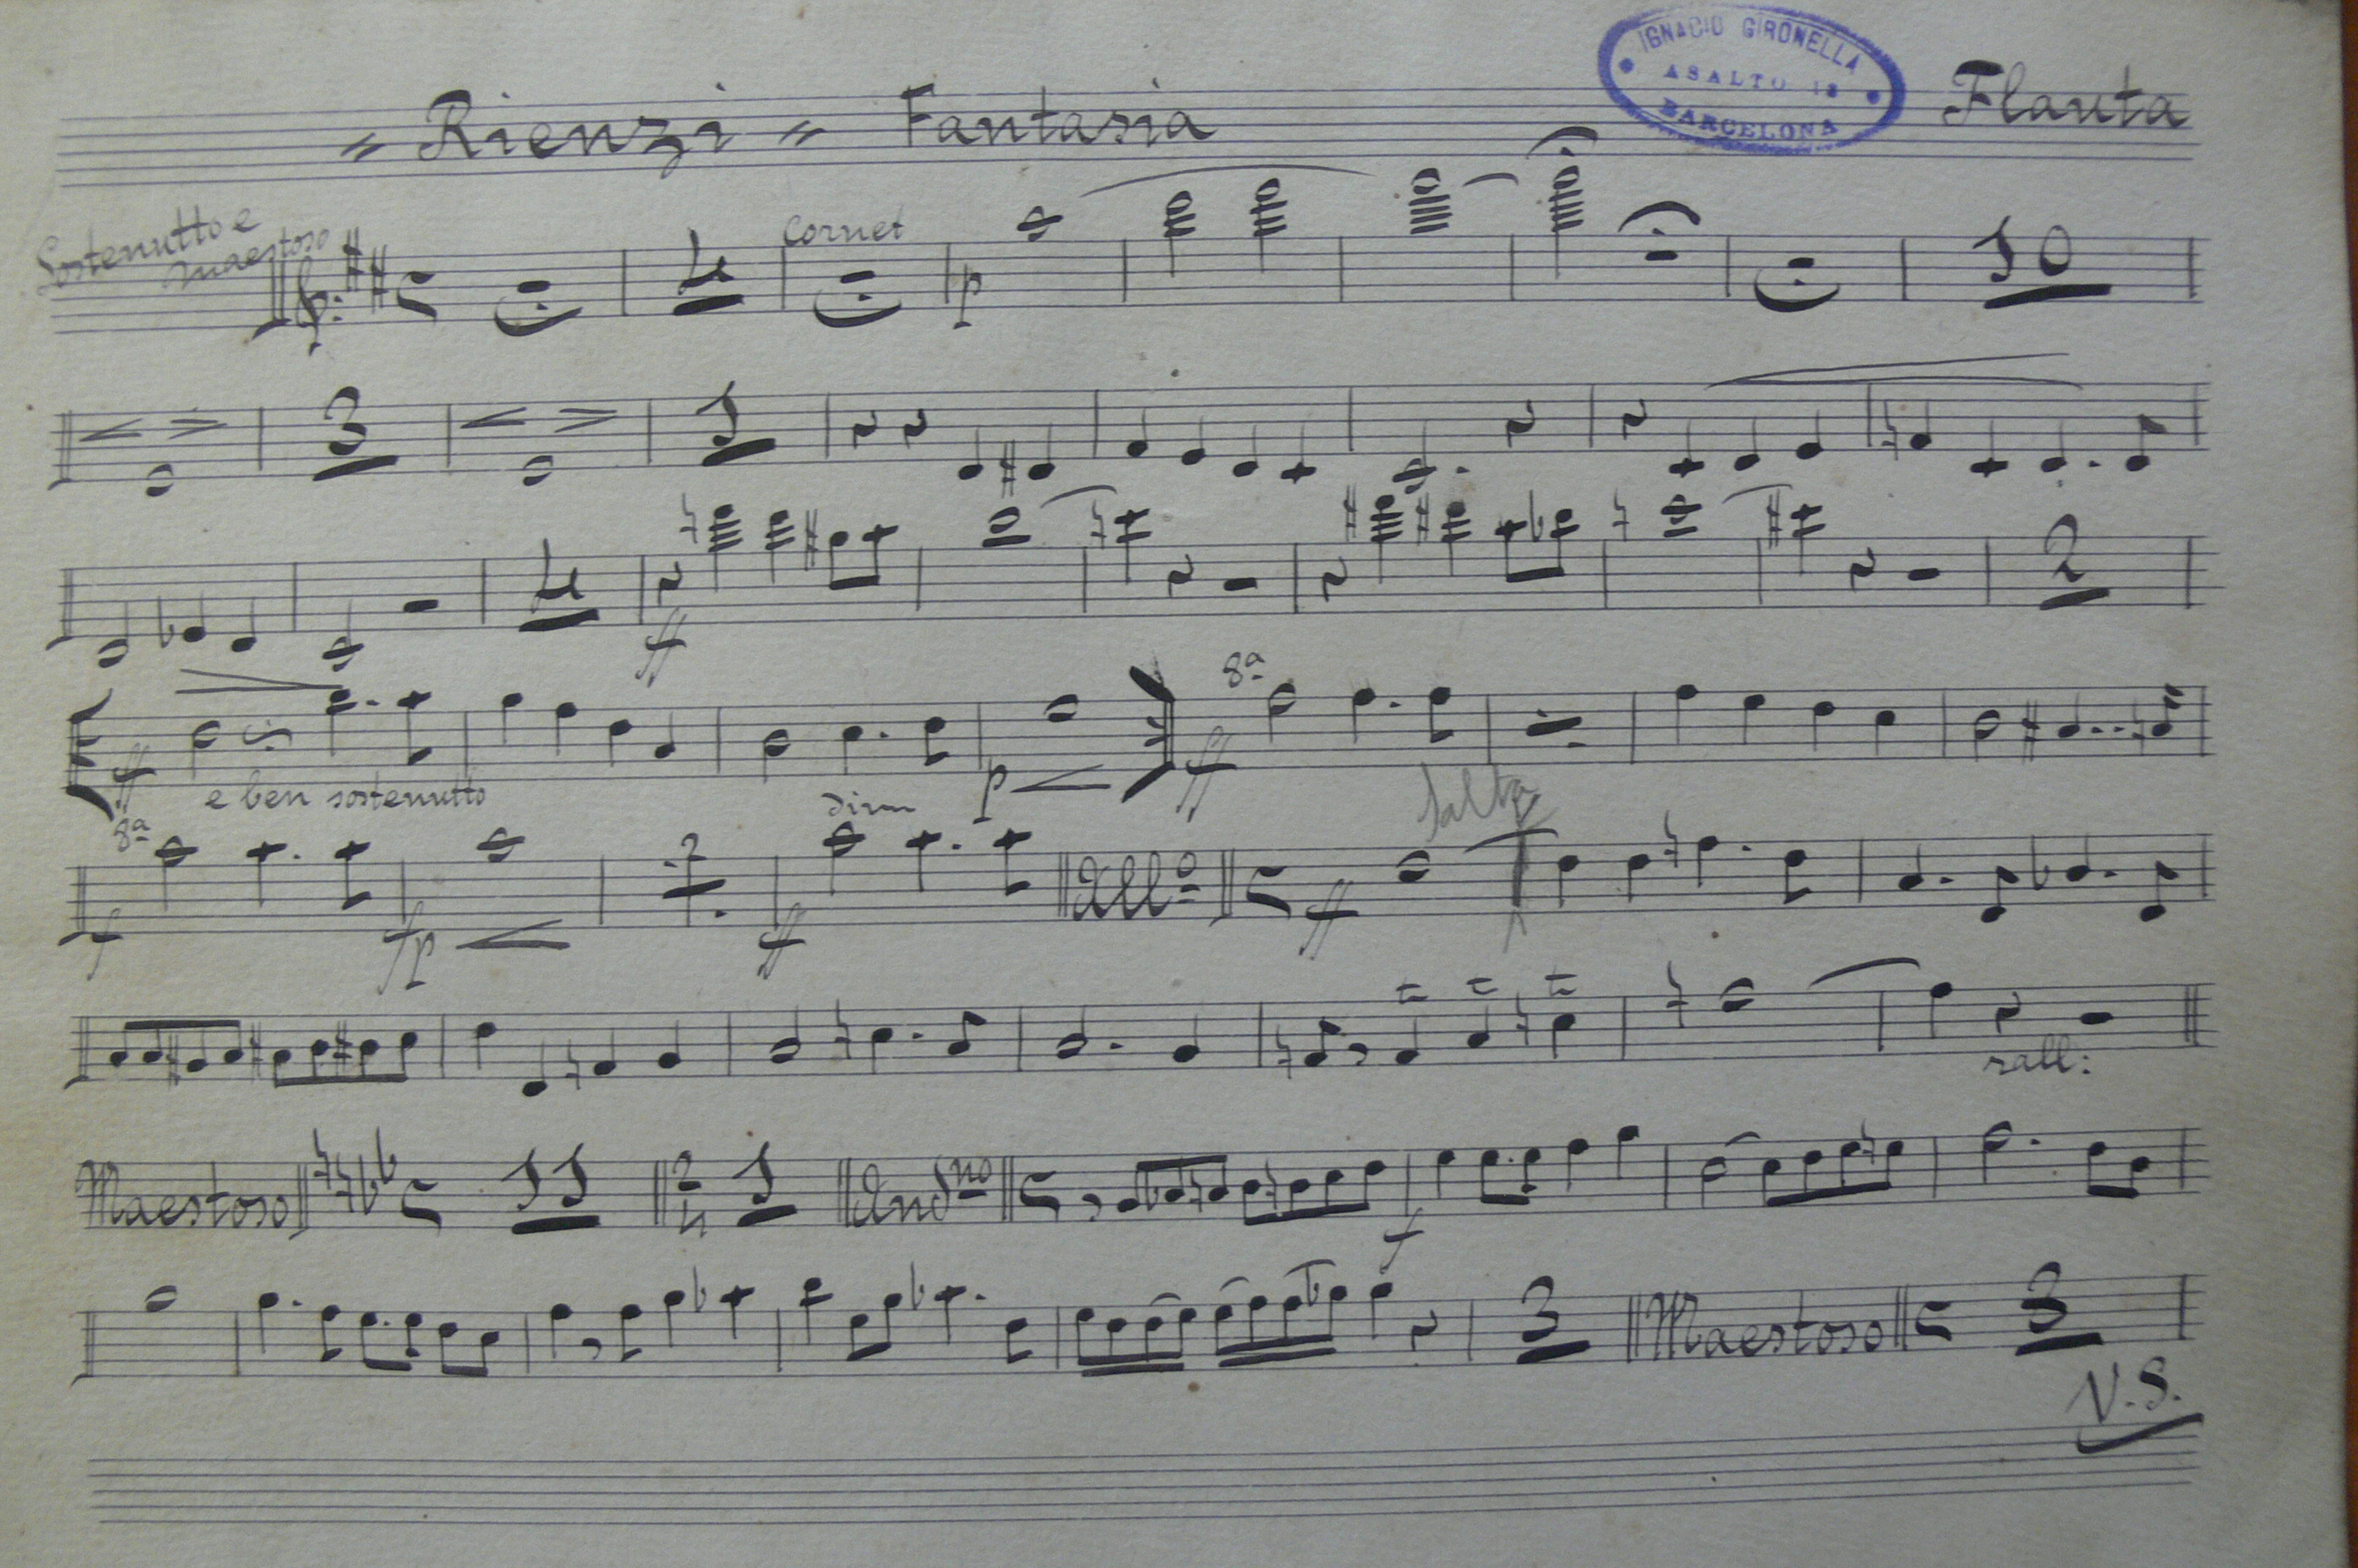 " Rienzi " Fantasia
IGNACIO GIRONELLA
ASALTO 12
BARCELONA
Flauta
Sostenutto e
maestoso
Cornet
p
4
10
3
1
ff
4
2
8ª
ff
e ben sostenutto
p
ff
8ª
f
fp
2
dim
ff
All.º
Salta
ff
rall:
Maestoso
11
2
4
1
And.no
f
3
Maestoso
3
V.S.